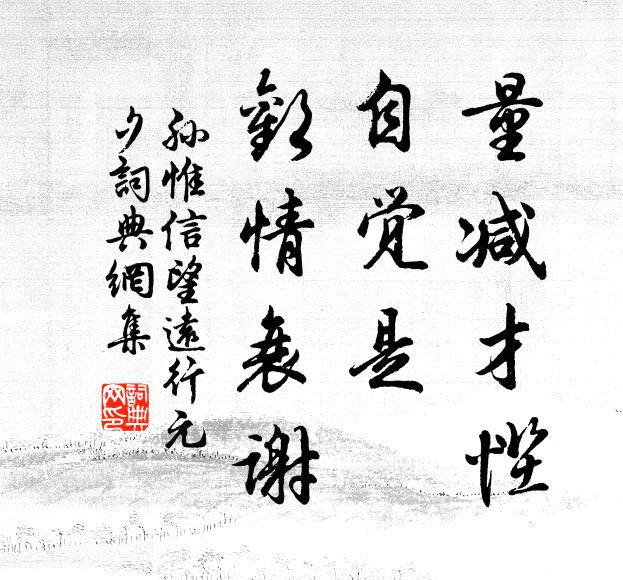 量减才悭
自觉是
歡情衰谢
孫惟信望遠行元
夕詞典網集
詞典
网印